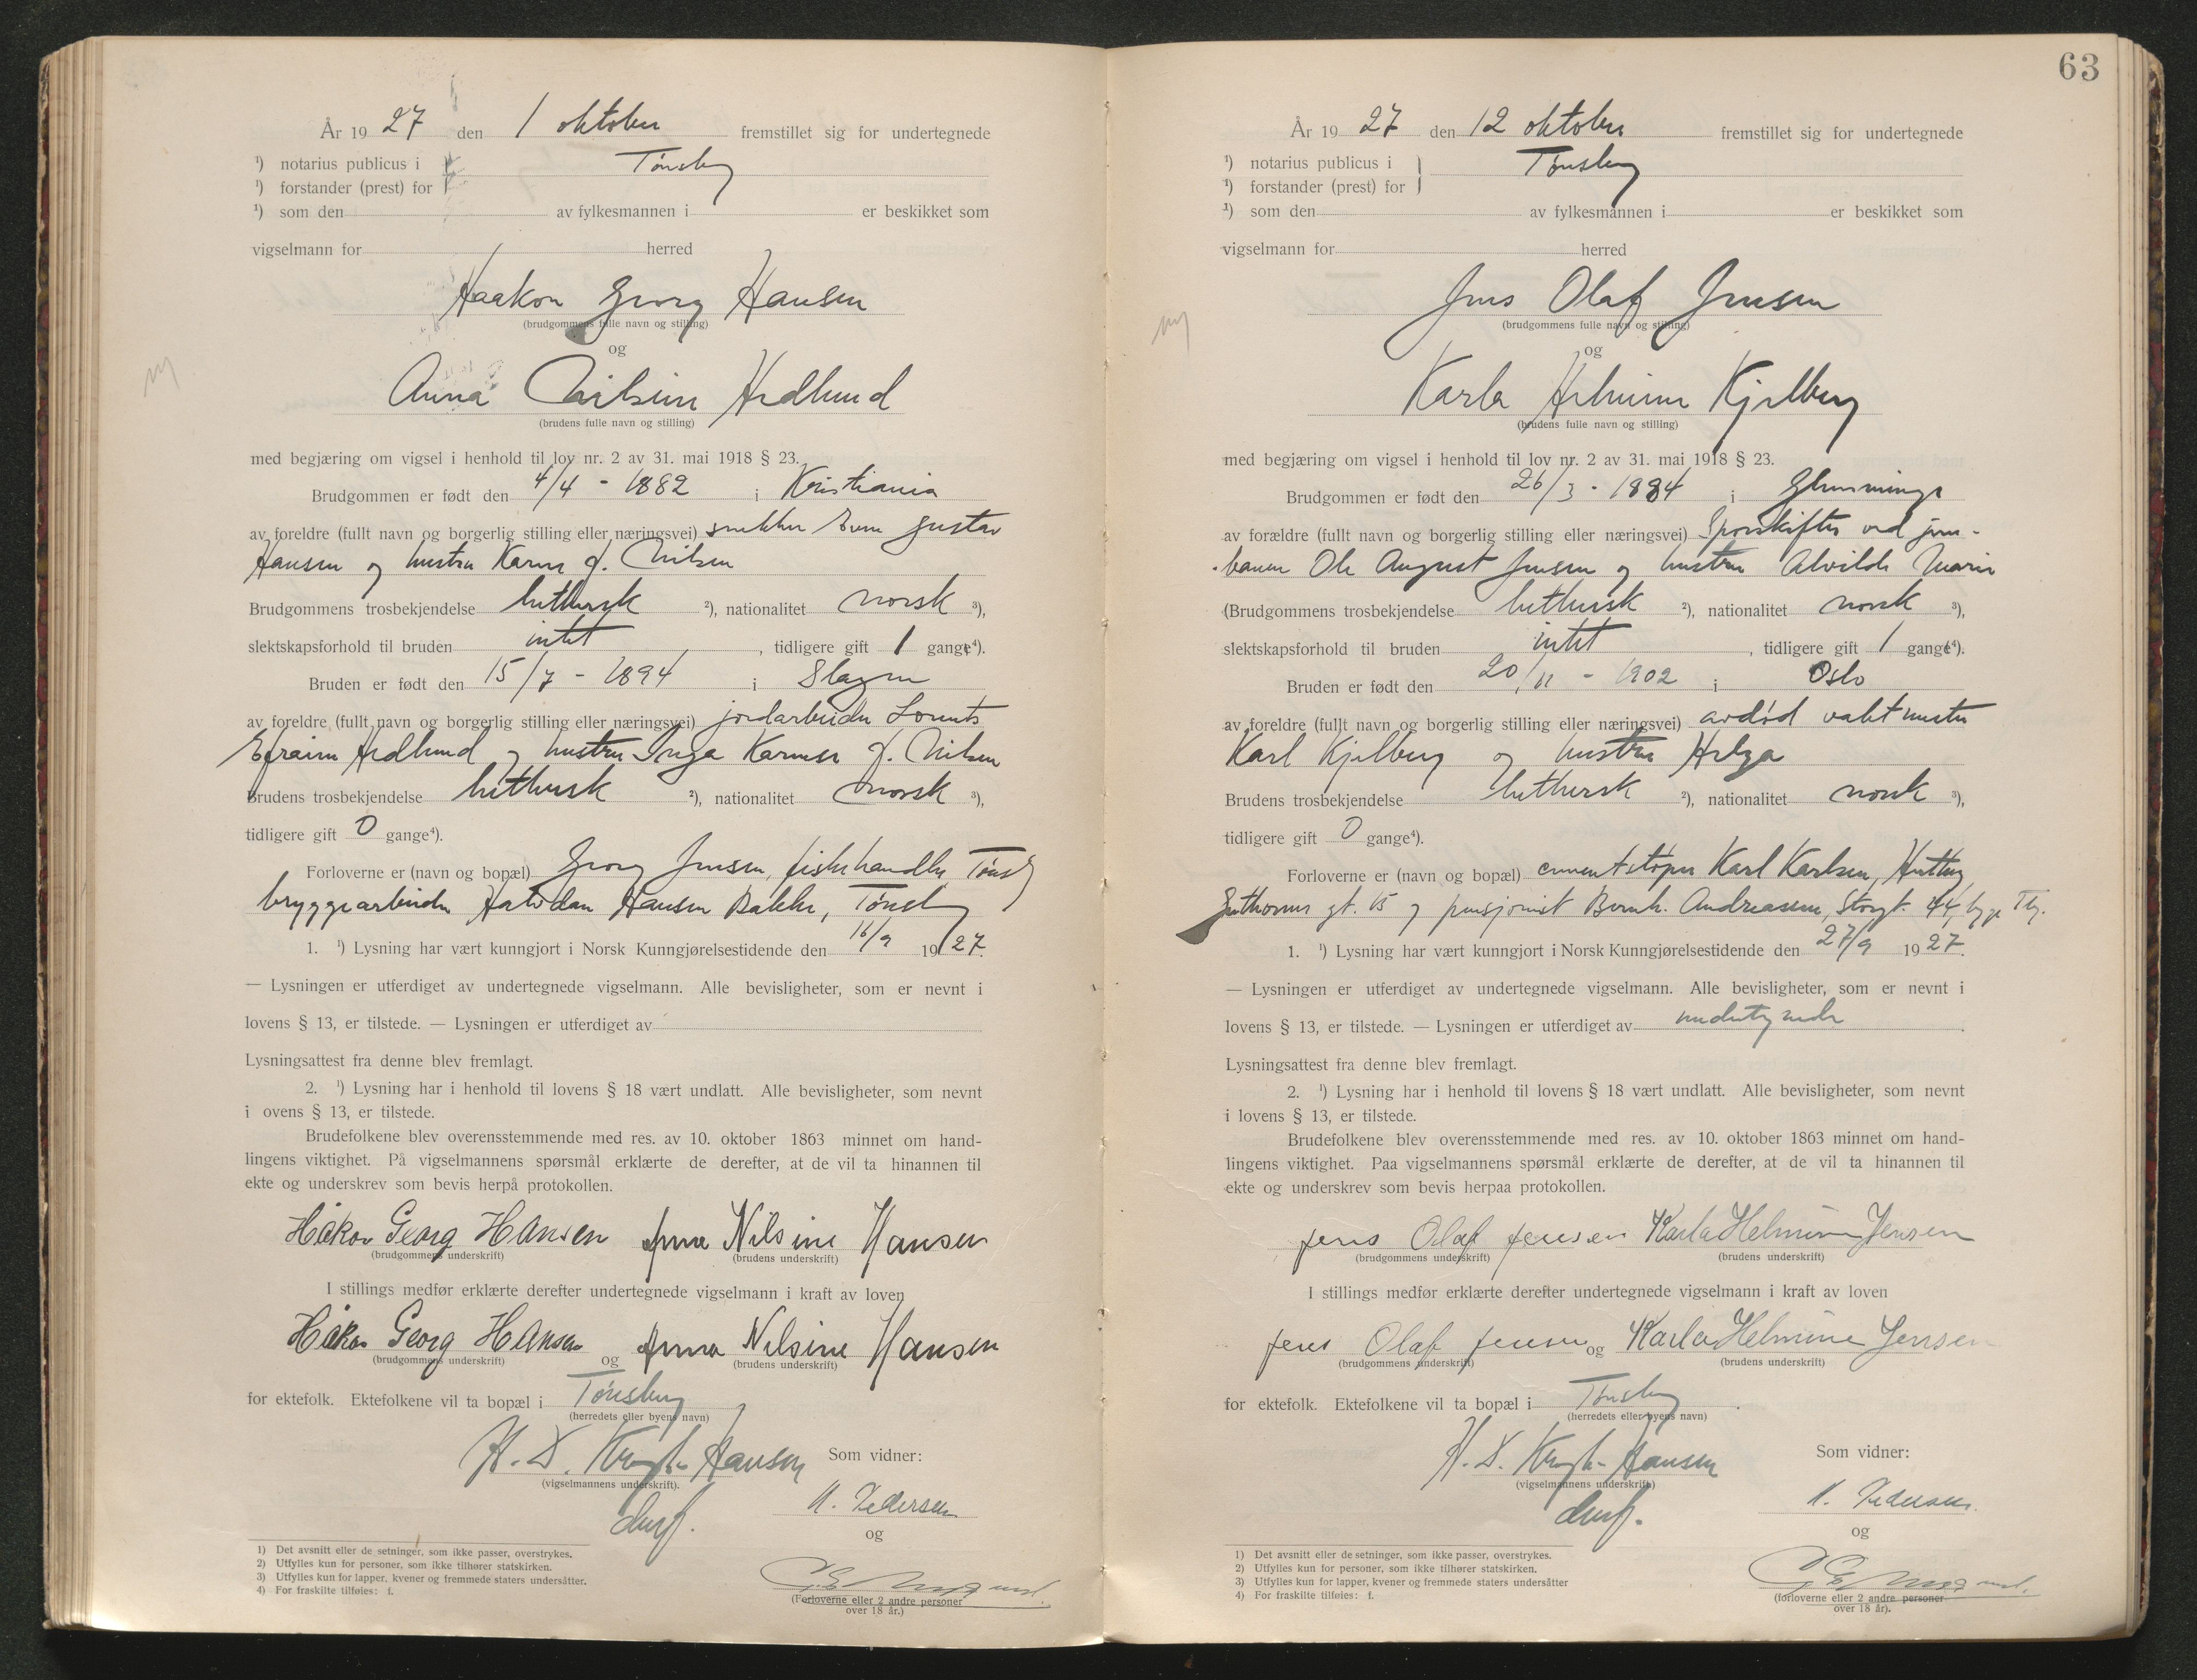 År 1927 den 1 oktober fremstillet sig for undertegnede
¹) notarius publicus i
Tønsberg
¹) forstander (prest) for
¹) som den av fylkesmannen i er beskikket som
vigselmann for herred
Haakon Georg Hansen
(brudgommens fulle navn og stilling)
og
Anna Nilsine Hedlund
(brudens fulle navn og stilling)
med begjæring om vigsel i henhold til lov nr. 2 av 31. mai 1918 § 23.
Brudgommen er født den 4/4 - 1882 i Kristiania
av foreldre (fullt navn og borgerlig stilling eller næringsvei) snekker Even Gustav
Hansen og hustru Karen f. Nilsen
Brudgommens trosbekjendelse luthersk ²), nationalitet norsk ³),
slektskapsforhold til bruden intet, tidligere gift 1 gange⁴).
Bruden er født den 15/7 - 1894 i Slagen
av foreldre (fullt navn og borgerlig stilling eller næringsvei) jordarbeider Lorents
Efraim Hedlund og hustru Inga Karense f. Nilsen
Brudens trosbekjendelse luthersk ²), nationalitet norsk ³),
tidligere gift 0 gange⁴).
Forloverne er (navn og bopæl) Georg Jensen, fiskehandler, Tønsbg
bryggearbeider Halvdan Hansen Bakke, Tønsberg
1. ¹) Lysning har vært kunngjort i Norsk Kunngjørelsestidende den 16/9 1927.
— Lysningen er utferdiget av undertegnede vigselmann. Alle bevisligheter, som er nevnt i
lovens § 13, er tilstede. — Lysningen er utferdiget av
Lysningsattest fra denne blev fremlagt.
2. ¹) Lysning har i henhold til lovens § 18 vært undlatt. Alle bevisligheter, som nevnt
i ovens § 13, er tilstede.
Brudefolkene blev overensstemmende med res. av 10. oktober 1863 minnet om hand-
lingens viktighet. På vigselmannens spørsmål erklærte de derefter, at de vil ta hinannen til
ekte og underskrev som bevis herpå protokollen.
Håkon Georg Hansen Anna Nilsine Hansen
(brudgommens underskrift) (brudens underskrift)
I stillings medfør erklærte derefter undertegnede vigselmann i kraft av loven
Håkon Georg Hansen og Anna Nilsine Hansen
(brudgommens underskrift) (brudens underskrift)
for ektefolk. Ektefolkene vil ta bopæl i Tønsberg
(herredets eller byens navn)
H. D. Krogh-Hansen
(vigselmannens underskrift).
Som vidner:
N. Pedersen
og
(Forloverne eller 2 andre personer
over 18 år.)
1) Det avsnitt eller de setninger, som ikke passer, overstrykes.
2) Utfylles kun for personer, som ikke tilhører statskirken.
3) Utfylles kun for lapper, kvener og fremmede staters undersåtter.
4) For fraskilte tilføies: f.
63
År 1927 den 12 oktober fremstillet sig for undertegnede
¹) notarius publicus i
Tønsberg
¹) forstander (prest) for
¹) som den av fylkesmannen i er beskikket som
vigselmann for herred
Jens Olaf Jensen
(brudgommens fulle navn og stilling)
og
Karla Helmine Kjelberg
(brudens fulle navn og stilling)
med begjæring om vigsel i henhold til lov nr. 2 av 31. mai 1918 § 23.
Brudgommen er født den 26/3 - 1884 i Glemminge
av forældre (fullt navn og borgerlig stilling eller næringsvei) Sporskifter ved jern-
banen Ole August Jensen og hustru Alvilde Marie
(Brudgommens trosbekjendelse luthersk ²), nationalitet norsk ³),
slektskapsforhold til bruden intet, tidligere gift 1 gange⁴).
Bruden er født den 20/11 - 1902 i Oslo
av foreldre (fullt navn og borgerlig stilling eller næringsvei) avdød vaktmester
Karl Kjelberg og hustru Helga
Brudens trosbekjendelse luthersk ²), nationalitet norsk ³),
tidligere gift 0 gange⁴).
Forloverne er (navn og bopæl) cementstøper Karl Karlsen,
gt. 15 og pensjonist Bernh. Andreassen, Storgt. 44, begge Tbg.
1. ¹) Lysning har vært kunngjort i Norsk Kunngjørelsestidende den 27/9 1927.
— Lysningen er utferdiget av undertegnede vigselmann. Alle bevisligheter, som er nevnt i
lovens § 13, er tilstede. — Lysningen er utferdiget av undertegnede.
Lysningsattest fra denne blev fremlagt.
2. ¹) Lysning har i henhold til lovens § 18 vært undlatt. Alle bevisligheter, som nevnt
i lovens § 13, er tilstede.
Brudefolkene blev overensstemmende med res. av 10. oktober 1863 minnet om hand-
lingens viktighet. Paa vigselmannens spørsmål erklærte de derefter, at de vil ta hinannen til
ekte og underskrev som bevis herpaa protokollen.
Jens Olaf Jensen Karla Helmine Jensen
(brudgommens underskrift) (brudens underskrift)
I stillings medfør erklærte derefter undertegnede vigselmann i kraft av loven
Jens Olaf Jensen og Karla Helmine Jensen
(brudgommens underskrift) (brudens underskrift)
for ektefolk. Ektefolkene vil ta bopæl i Tønsberg.
(herredets eller byens navn)
H. D. Krogh-Hansen
(vigselmannens underskrift)
Som vidner:
N. Pedersen.
og
(forloverne eller 2 andre personer
over 18 år).
1) Det avsnitt eller de setninger, som ikke passer, overstrykes.
2) Utfylles kun for personer, som ikke tilhører statskirken.
3) Utfylles kun for lapper, kvener og fremmede staters undersåtter
4) For fraskilte tilføies: f.